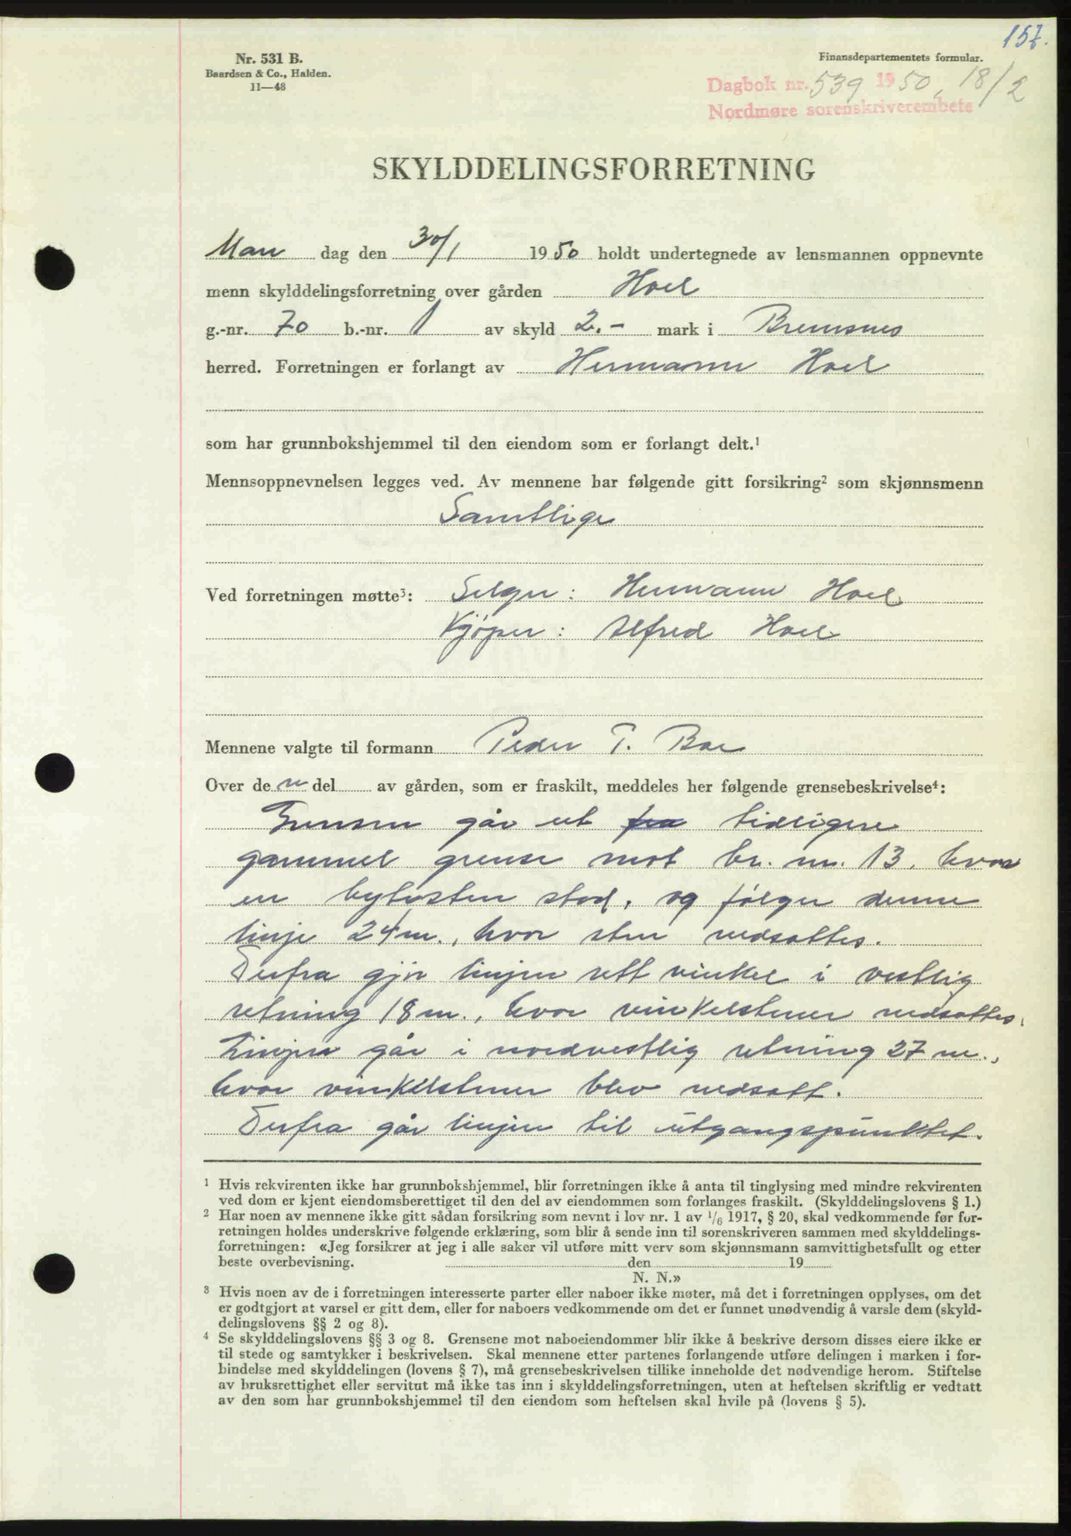 157.
Nr. 531 B.
Baardsen & Co., Halden.
11—48
Finansdepartementets formular.
Dagbok nr. 539 1950, 18/2
Nordmøre sorenskriverembete
SKYLDDELINGSFORRETNING
Man dag den 30/1 1950 holdt undertegnede av lensmannen oppnevnte
menn skylddelingsforretning over gården Hoel
g.-nr. 70 b.-nr. 1 av skyld 2.- mark i Bremsnes
herred. Forretningen er forlangt av Hermann Hoel
som har grunnbokshjemmel til den eiendom som er forlangt delt.¹
Mennsoppnevnelsen legges ved. Av mennene har følgende gitt forsikring² som skjønnsmenn
Samtlige
Ved forretningen møtte³: Selger: Hermann Hoel
Kjøper: Alfred Hoel
Mennene valgte til formann Peder T. Boe
Over den del av gården, som er fraskilt, meddeles her følgende grensebeskrivelse⁴:
Grensen går ut fra tidligere
gammel grense mot br. nr. 13, hvor
en bytesten stod, og følger denne
linje 24 m., hvor sten nedsattes.
Derfra gjør linjen rett vinkel i vestlig
retning 18 m., hvor vinkelstener nedsattes.
Linjen går i nordvestlig retning 27 m.,
hvor vinkelstener blev nedsatt.
Derfra går linjen til utgangspunktet.
¹ Hvis rekvirenten ikke har grunnbokshjemmel, blir forretningen ikke å anta til tinglysing med mindre rekvirenten
ved dom er kjent eiendomsberettiget til den del av eiendommen som forlanges fraskilt. (Skylddelingslovens § 1.)
² Har noen av mennene ikke gitt sådan forsikring som nevnt i lov nr. 1 av 1/6 1917, § 20, skal vedkommende før for-
retningen holdes underskrive følgende erklæring, som blir å sende inn til sorenskriveren sammen med skylddelings-
forretningen: «Jeg forsikrer at jeg i alle saker vil utføre mitt verv som skjønnsmann samvittighetsfullt og etter
beste overbevisning. den 19
N. N.»
³ Hvis noen av de i forretningen interesserte parter eller naboer ikke møter, må det i forretningen opplyses, om det
er godtgjort at varsel er gitt dem, eller for naboers vedkommende om det er funnet unødvendig å varsle dem (skyld-
delingslovens §§ 2 og 8).
⁴ Se skylddelingslovens §§ 3 og 8. Grensene mot naboeiendommer blir ikke å beskrive dersom disses eiere ikke er
til stede og samtykker i beskrivelsen. Skal mennene etter partenes forlangende utføre delingen i marken i for-
bindelse med skylddelingen (lovens § 7), må grensebeskrivelsen tillike inneholde det nødvendige herom. Stiftelse
av bruksrettighet eller servitut må ikke tas inn i skylddelingsforretningen, uten at heftelsen skriftlig er vedtatt
av den som har grunnbokshjemmel til den eiendom som heftelsen skal hvile på (lovens § 5).